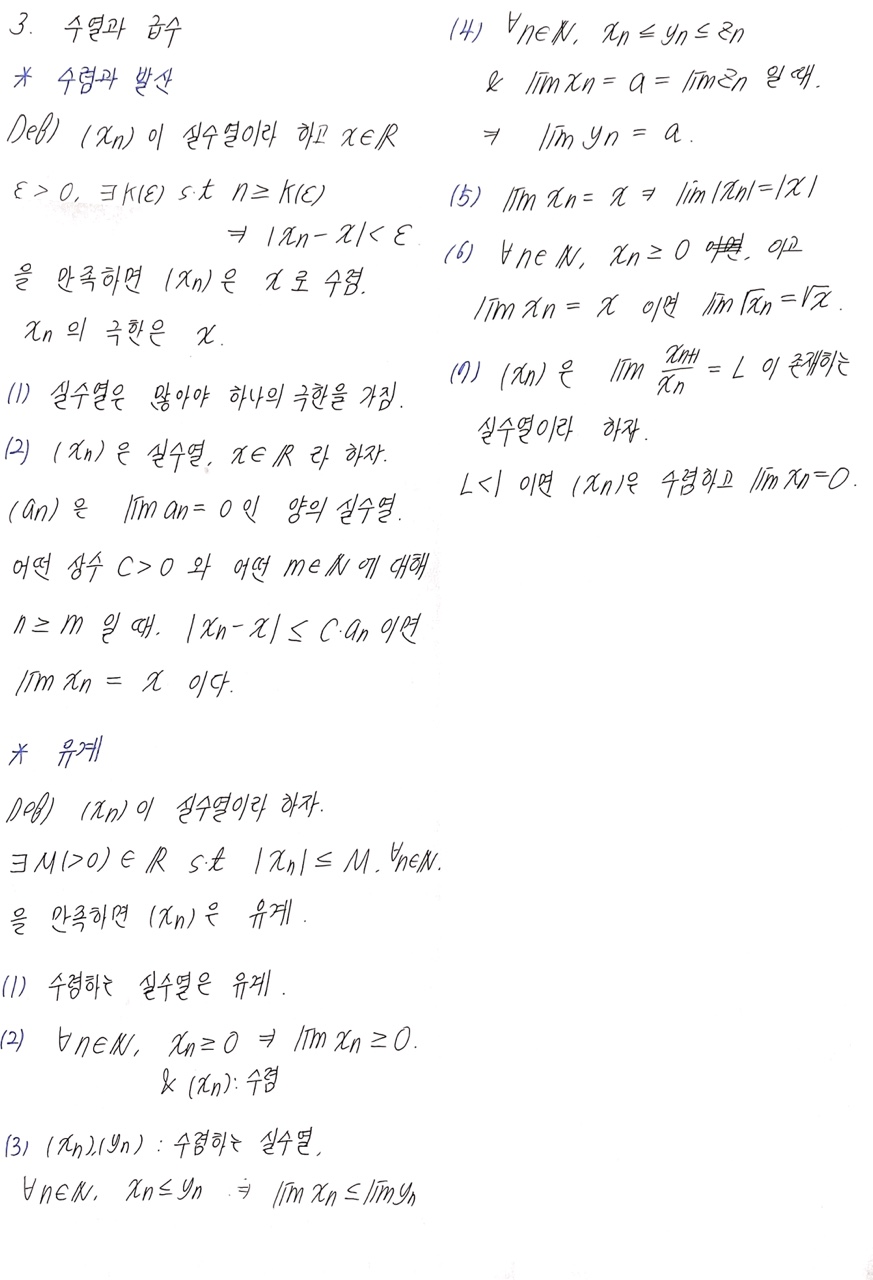 3. 수열과 급수
* 수렴과 발산
Def) (xn)이 실수열이라 하고 x∈ℝ
ε > 0, ∃K(ε) s.t n ≥ K(ε)
⇒ |xn - x| < ε
을 만족하면 (xn)은 x로 수렴.
xn의 극한은 x.
(1) 실수열은 많아야 하나의 극한을 가짐.
(2) (xn)은 실수열, x∈ℝ라 하자.
(an)은 lim an = 0인 양의 실수열.
어떤 상수 C > 0와 어떤 m∈ℕ에 대해
n ≥ m 일 때. |xn - x| ≤ C·an 이면
lim xn = x 이다.
* 유계
Def) (xn)이 실수열이라 하자.
∃M(>0) ∈ ℝ s.t |xn| ≤ M, ∀n∈ℕ.
을 만족하면 (xn)은 유계.
(1) 수렴하는 실수열은 유계.
(2) ∀n∈ℕ, xn ≥ 0 ⇒ lim xn ≥ 0.
& (xn): 수렴
(3) (xn),(yn) : 수렴하는 실수열,
∀n∈ℕ, xn ≤ yn ⇒ lim xn ≤ lim yn
(4) ∀n∈ℕ, xn ≤ yn ≤ zn
& lim xn = a = lim zn 일 때.
⇒ lim yn = a.
(5) lim xn = x ⇒ lim |xn| = |x|
(6) ∀n∈ℕ, xn ≥ 0 이면, 이고
lim xn = x 이면 lim √xn = √x.
(7) (xn)은 lim xn+1/xn = L 이 존재하는
실수열이라 하자.
L<1 이면 (xn)은 수렴하고 lim xn = 0.